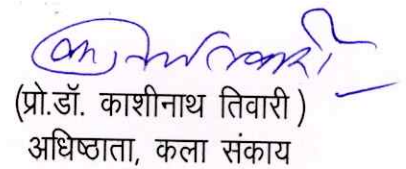 (प्रो.डॉ. काशीनाथ तिवारी )
अधिष्ठाता, कला संकाय